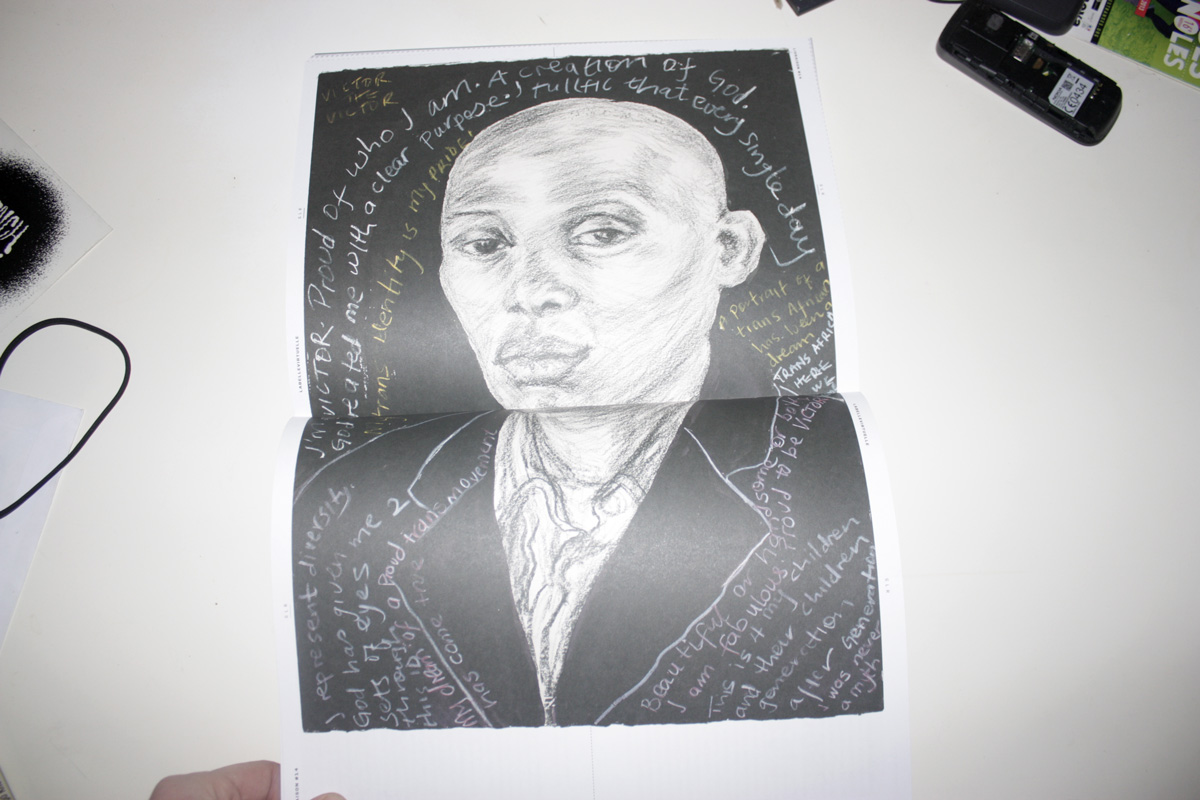 VICTOR
THE
VICTOR
I'm VICTOR Proud of who I am. A creation of God.
God created me with a clear Purpose. I fullfic that every single day
My trans identity is my PRIDE!
A portrait of a
trans African
has been a
dream
TRANS AFRICA
HERE
WE
I represent diversity.
God has given me 2
sets of eyes
through
this
My dream of a proud trans movement
has come true
Beautiful or handsome or both
I am fabulous Proud to be VICTOR
This is 4 my children
and their children
generation
after generation
I was never
a myth
LABELLEVIRTUELLE
NOLES